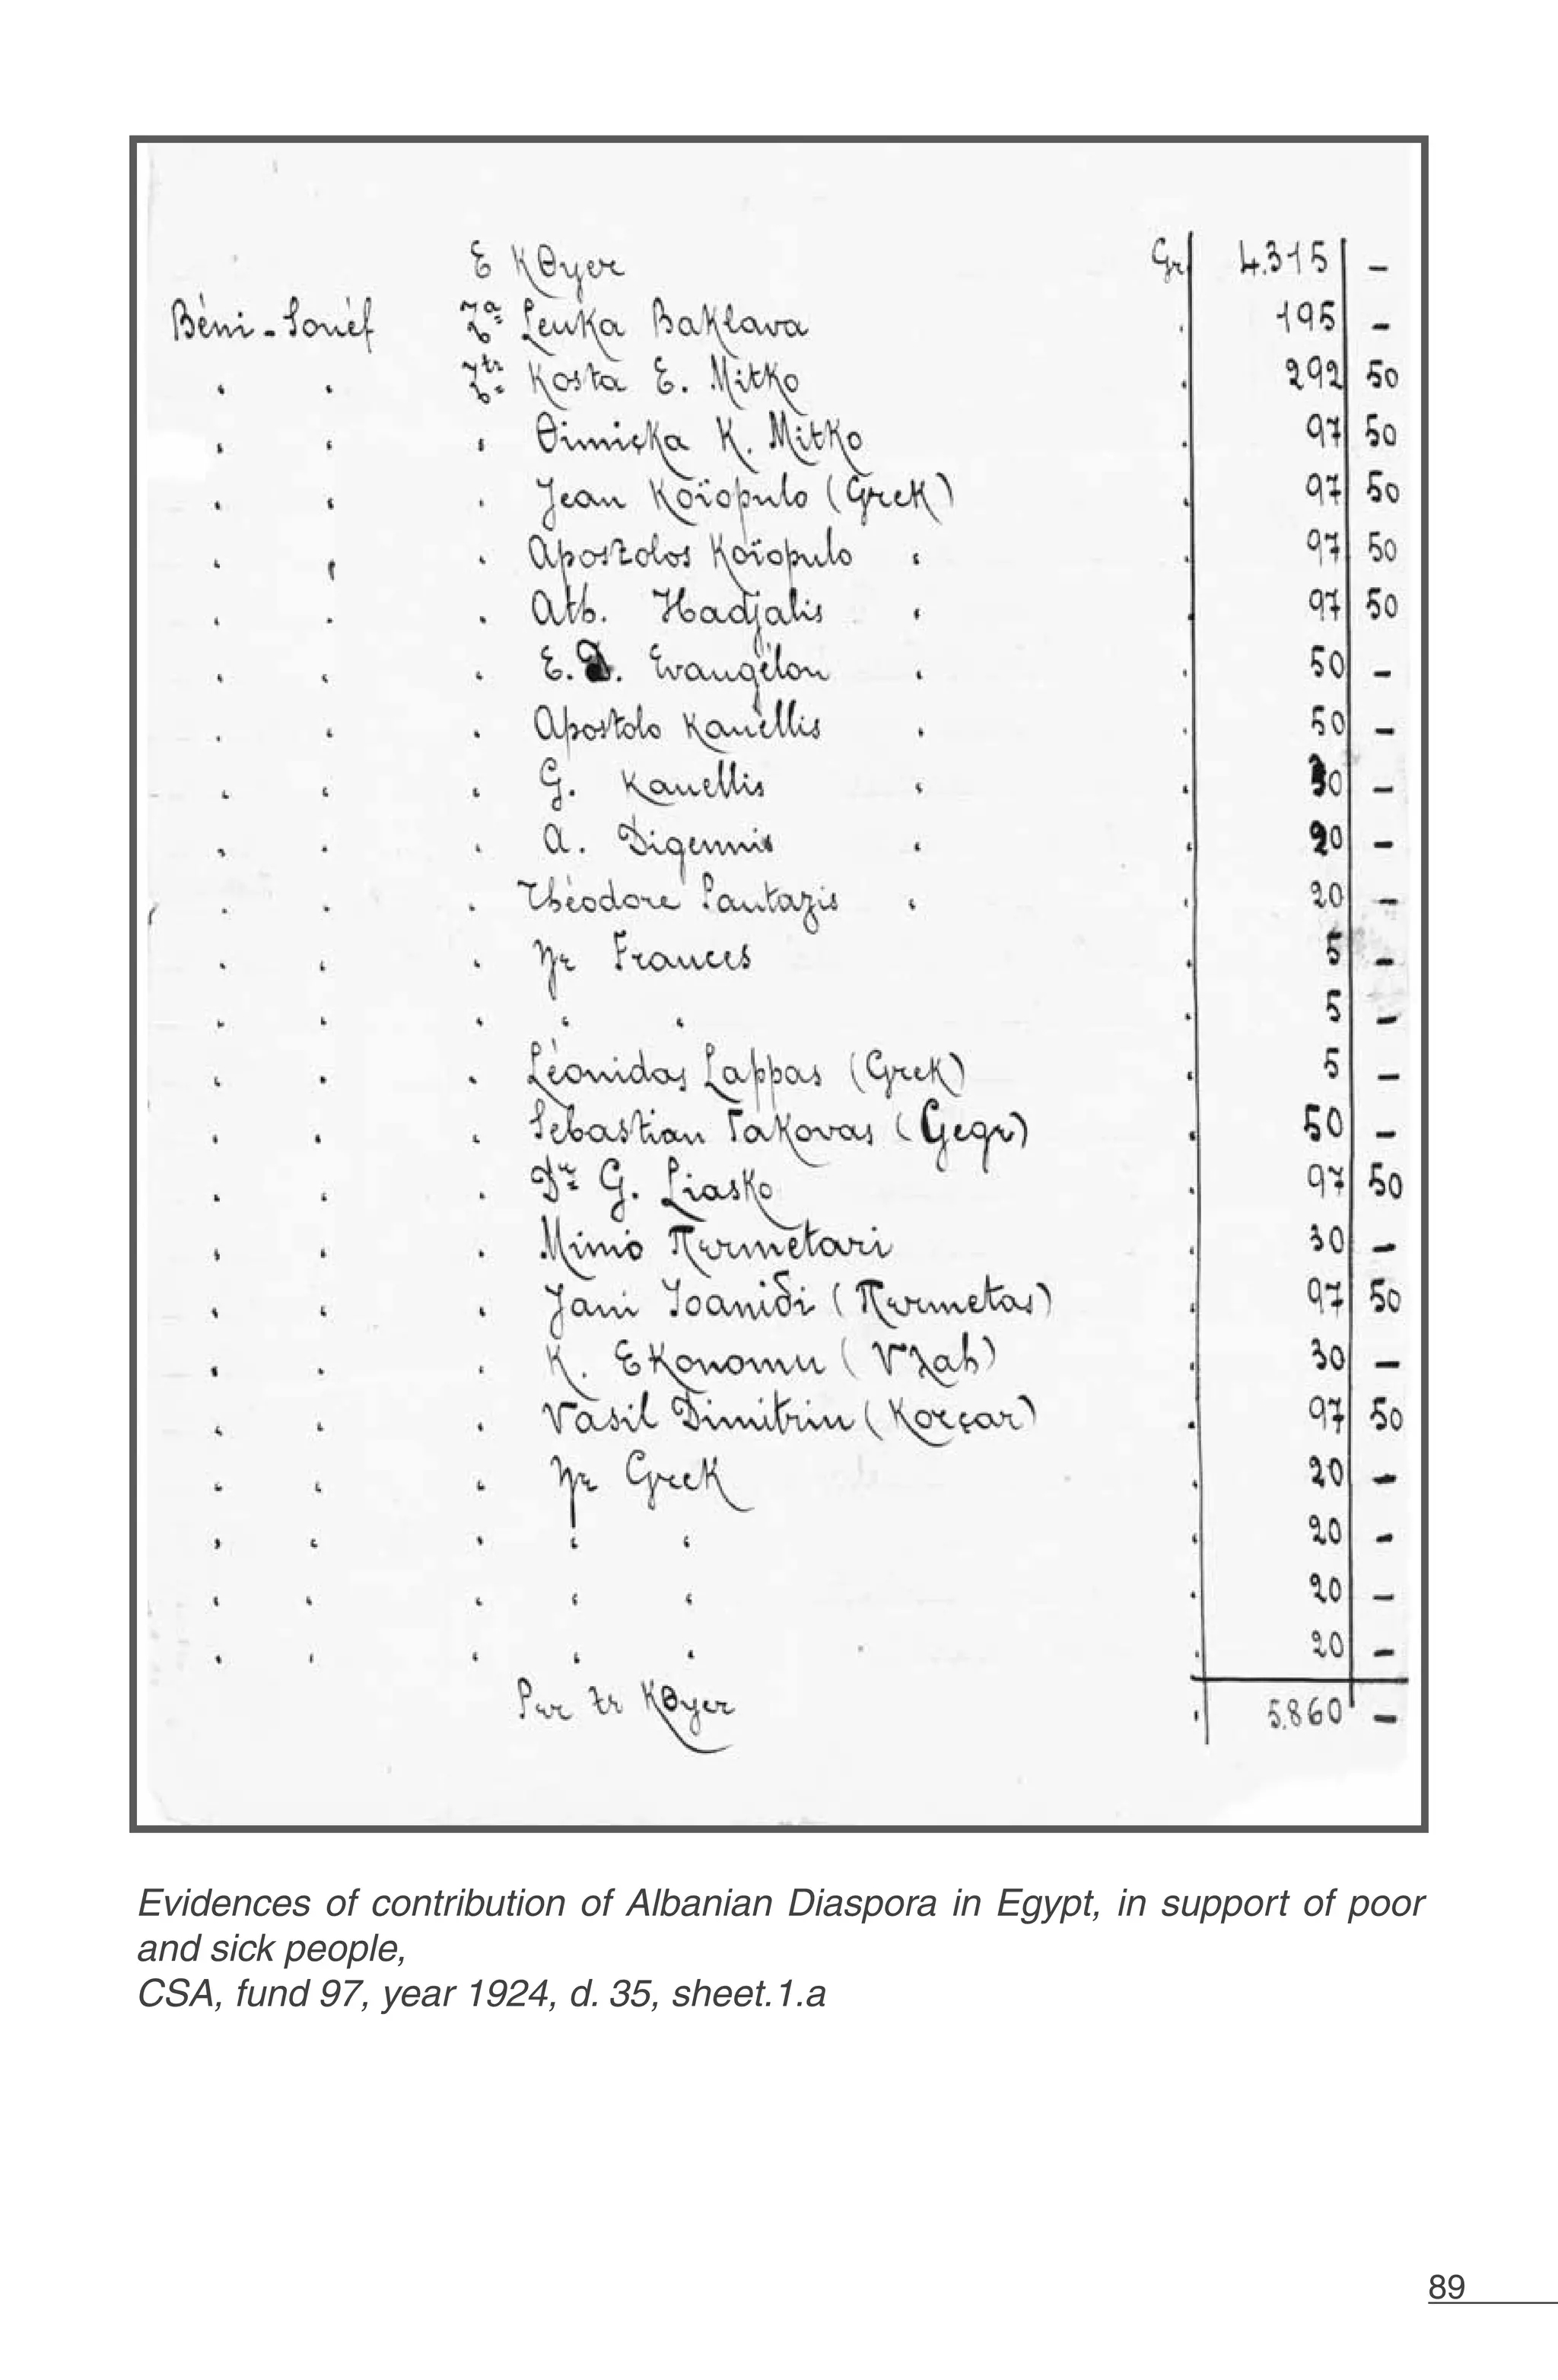 E KӨyer Gr 4.315 –
Béni-Souéf Zª Leuka Baklava 195 –
" " Ztr Kosta E. Mitko " 292 50
" " " Өimiçka K. Mitko " 97 50
" " " Jean Koïopulo (Grek) " 97 50
" " " Apostolos Koïopulo " " 97 50
" " " Ath. Hadjalis " " 97 50
" " " E. D. Evangélou " " 50 –
" " " Apostolo Kanellis " " 50 –
" " " G. Kanellis " " 30 –
" " " A. Digennis " " 20 –
" " " Théodore Pantazis " " 20 –
" " " Frances " 5 –
" " " " " " 5 –
" " " Léonidas Lappas (Grek) " 5 –
" " " Sebastian Takovas (Gegr) " 50 –
" " " Dr G. Liasko " 97 50
" " " Mimo " 30 –
" " " Jani Ioaniδi " 97 50
" " " K. Ekonomu " 30 –
" " " Vasil Dimitriu (Korçar) " 97 50
" " " Grek " 20 –
" " " " " " 20 –
" " " " " " 20 –
" " " " " " 20 –
KӨyer " 5.860 –
Evidences of contribution of Albanian Diaspora in Egypt, in support of poor
and sick people,
CSA, fund 97, year 1924, d. 35, sheet.1.a
89